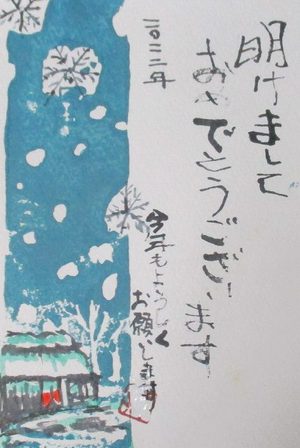 明けまして
おめでとうございます
二〇二二年
今年もよろしく
お願いします